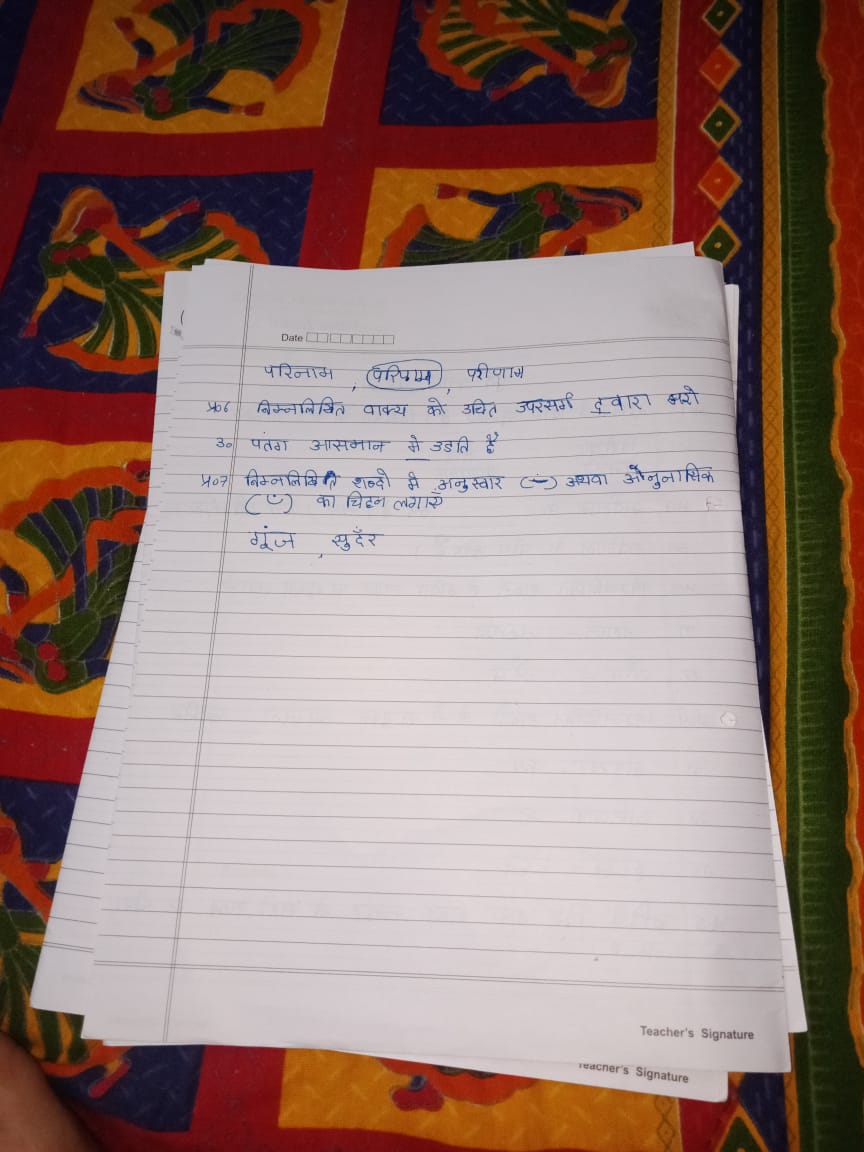 Date
परिनाम , परिणाम , परीणाम
प्र०6 निम्नलिखित वाक्य को उचित उपरसर्ग द्वारा भरो
उ० पतंग आसमान में उडति है
प्र०7 निम्नलिखित शब्दो में अनुस्वार (ं) अथवा औनुनासिक
(ँ) का चिहन लगाए
गूंज , सुदँर
Teacher's Signature
Teacher's Signature